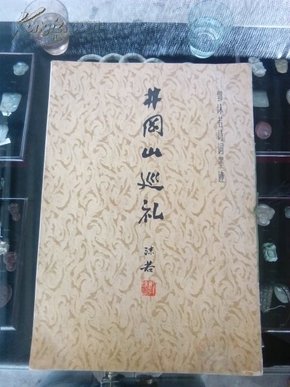 郭沫若诗词墨迹
井岡山巡礼
沫若